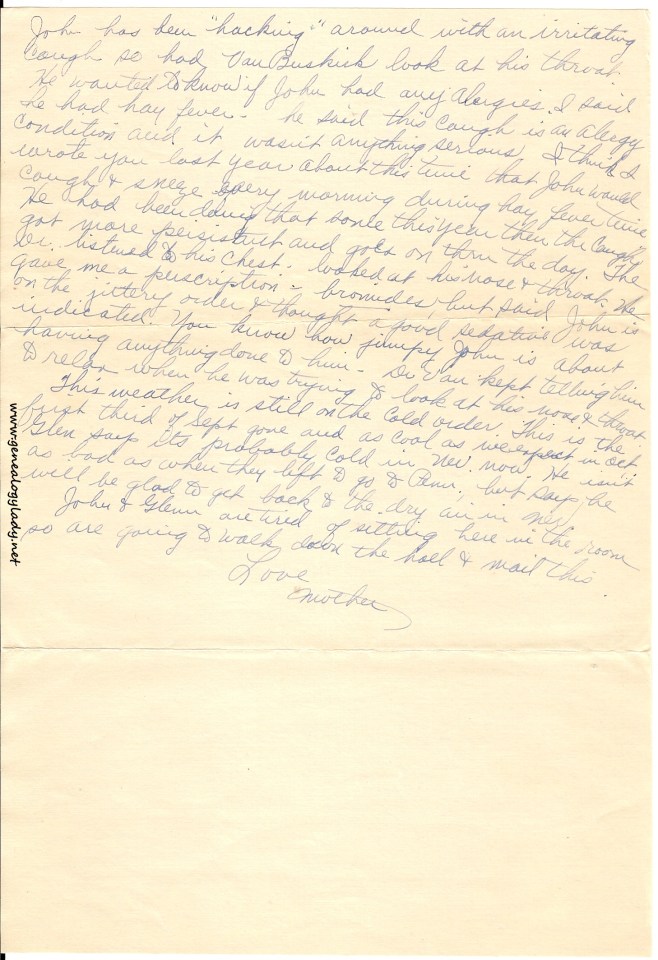 John has been "hacking" around with an irritating
cough so had Van Buskirk look at his throat.
He wanted to know if John had any Alergies. I said
he had hay fever - he said this cough is an alergy
condition and it wasn't anything serious. I think I
wrote you last year about this time that John would
cough & sneeze every morning during hay fever time
He had been doing that some this year then the cough
got more persistent and goes on thru the day. The
Dr. listened to his chest - looked at his nose & throat. He
gave me a perscription - bromides, but said John is
on the jittery order & thought a good sedative was
indicated. You know how jumpy John is about
having anything done to him - Dr Van kept telling him
to relax when he was trying to look at his nose & throat
This weather is still on the cold order. This is the
first third of Sept gone and as cool as we expect in Oct
Glen says its probably cold in Nev. now. He isn't
as bad as when they left to go to Penn, but says he
will be glad to get back to the dry air in Nev.
John & Glenn are tired of sitting here in the room
so are going to walk down the hall & mail this.
Love
Mother
www.genealogylady.net